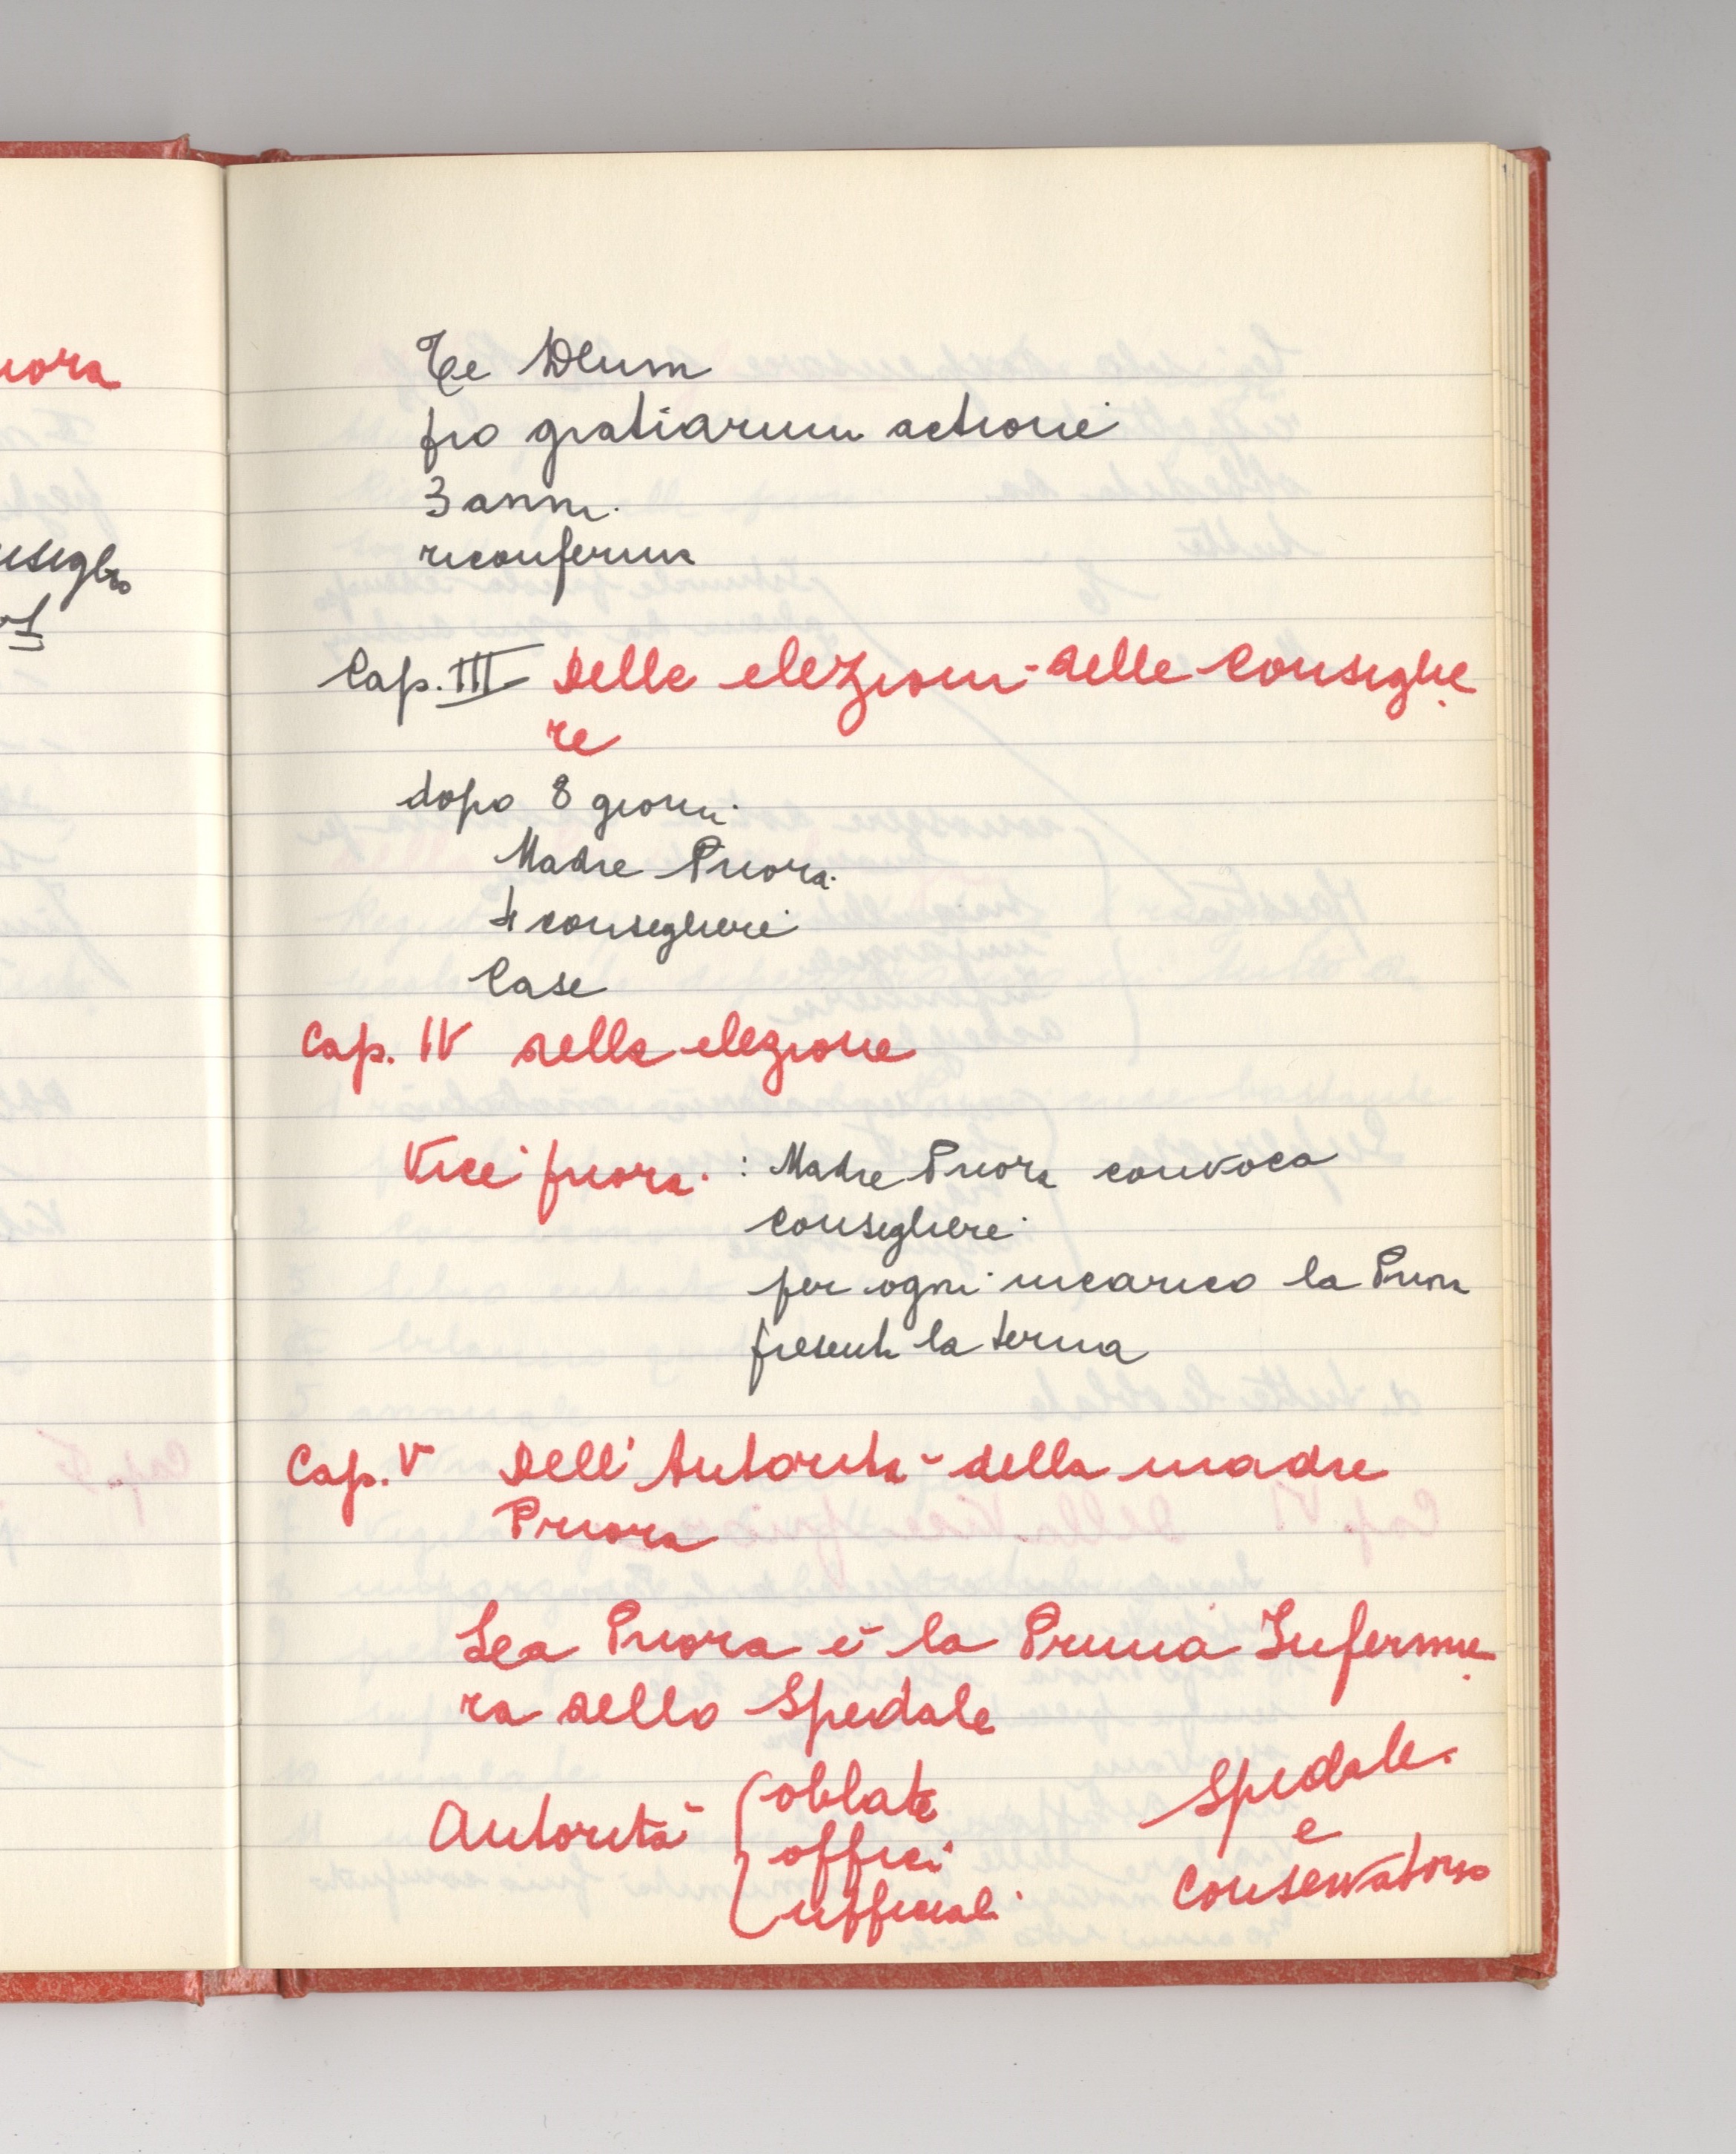 Te Deum
pro gratiarum actione
3 anni
riconferma
Cap. III Delle elezioni delle Consiglie
re
dopo 8 giorni
Madre Priora
4 consegliere
Case
Cap. IV della elezione
Vice priora : Madre Priora convoca
consegliere
per ogni incarico la Priora
presenti la terna
Cap. V Dell'Autorità della madre
Priora
Lea Priora è la Prima Infermie
ra dello Spedale
Autorità
oblate
offici
ufficiali
Spedale
e
Conservatorio